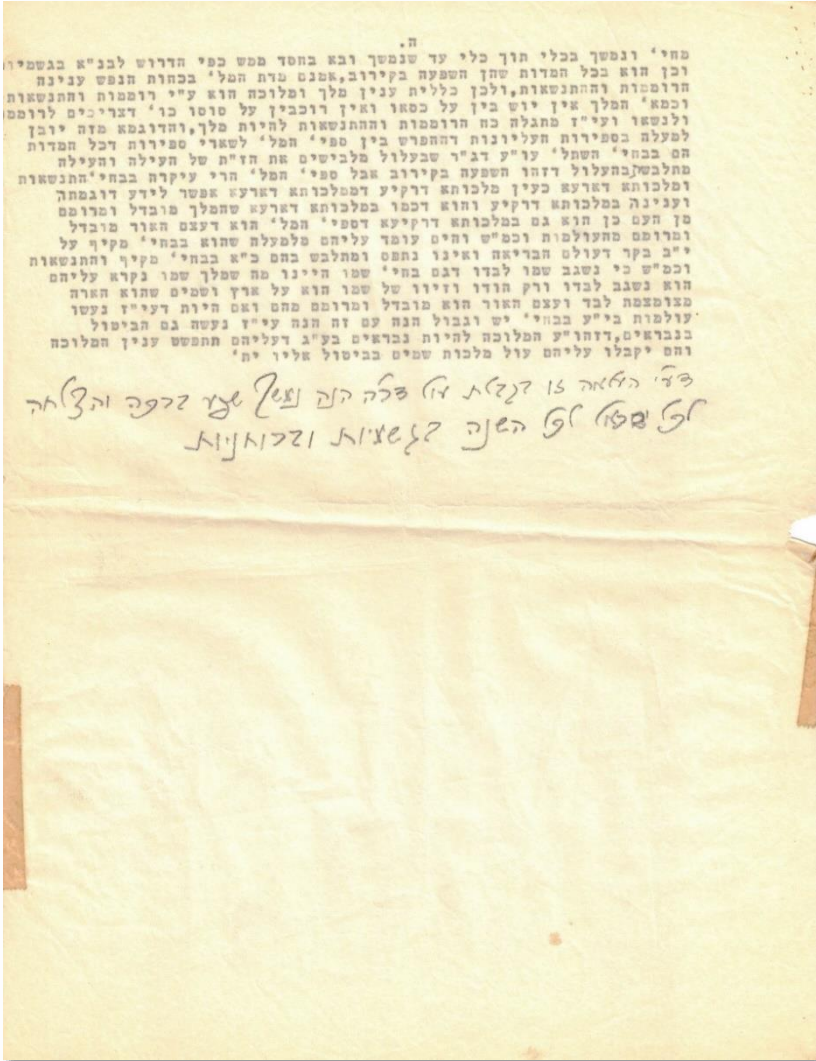 ה.
מחי' ונמשך בכלי תוך כלי עד שנמשך ובא בחסד ממש כפי הדרוש לבנ"א בגשמיו
וכן הוא בכל המדות שהן השפעה בקירוב,אמנם מדת המל' בכחות הנפש ענינה
הרוממות וההתנשאות,ולכן כללית ענין מלך ומלוכה הוא ע"י רוממות והתנשאות
וכמא' המלך אין יושבין על כסאו ואין רוכבין על סוסו כו' דצריכים לרוממו
ולנשאו ועי"ז מתגלה כח הרוממות וההתנשאות להיות מלך,והדוגמא מזה יובן
למעלה בספירות העליונות דההפרש בין ספי' המל' לשארי ספירות דכל המדות
הם בבחי' השתל' עו"ע דג"ר שבעלול מלבישים את הז"ת של העילה והעילה
מתלבשת בהעלול דזהו השפעה בקירוב אבל ספי' המל' הרי עיקרה בבחי'התנשאות
ומלכותא דארעא כעין מלכותא דרקיע דממלכותא דארעא אפשר לידע דוגמתה
וענינה במלכותא דרקיע והוא דכמו במלכותא דארעא שהמלך מובדל ומרומם
מן העם כן הוא גם במלכותא דרקיעא דספי' המל' הוא דעצם האור מובדל
ומרומם מהעולמות וכמ"ש והים עומד עליהם מלמעלה שהוא בבחי' מקיף על
י"ב בקר דעולם הבריאה ואינו נתפס ומתלבש בהם כ"א בבחי' מקיף והתנשאות
וכמ"ש כי נשגב שמו לבדו דגם בחי' שמו היינו מה שמלך שמו נקרא עליהם
הוא נשגב לבדו ורק הודו וזיוו של שמו הוא על ארץ ושמים שהוא הארה
מצומצמת לבד ועצם האור הוא מובדל ומרומם מהם ואם היות דעי"ז נעשו
עולמות בי"ע בבחי' יש וגבול הנה עם זה הנה עי"ז נעשה גם הביטול
בנבראים,דזהו"ע המלוכה להיות נבראים בע"ג דעליהם תתפשט ענין המלוכה
והם יקבלו עליהם עול מלכות שמים בביטול אליו ית'
דע"י זו בקבלת עול הנה נמשך שפע ברכה והצלחה
לכל ישראל לכל השנה בגשמיות וברוחניות